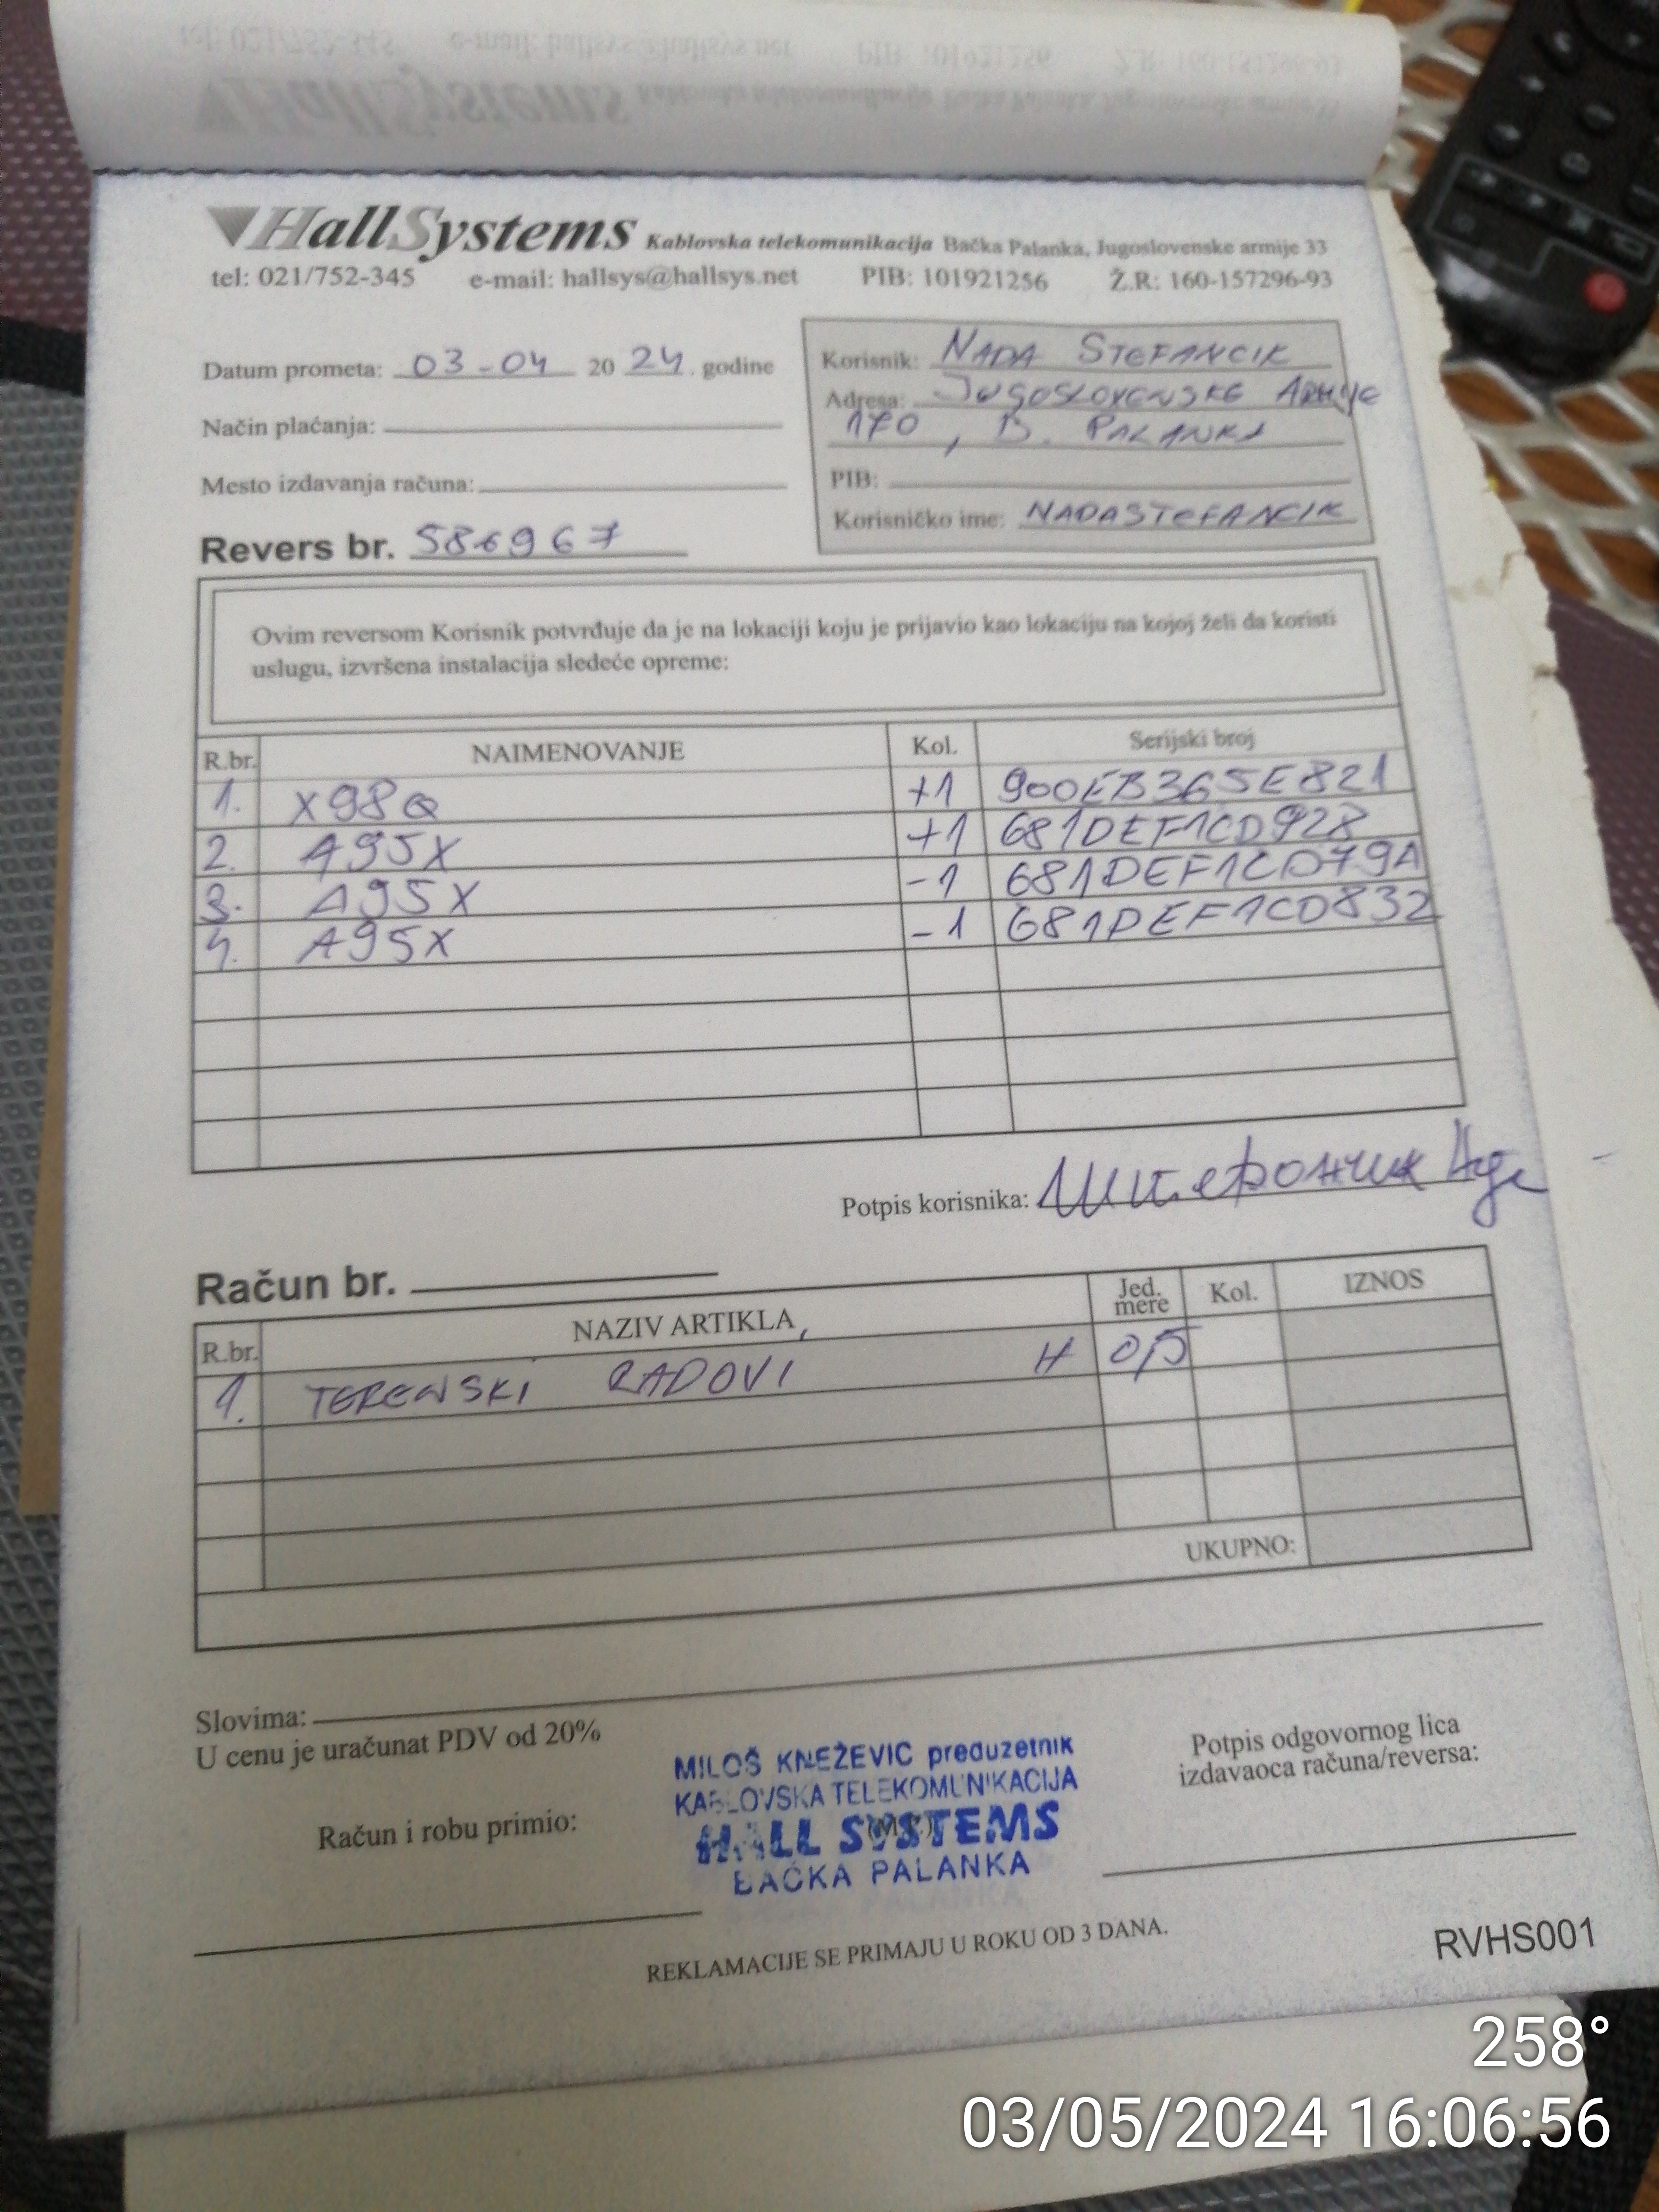 HallSystems Kablovska telekomunikacija Bačka Palanka, Jugoslovenske armije 33
tel: 021/752-345 e-mail: hallsys@hallsys.net PIB: 101921256 Ž.R: 160-157296-93
Datum prometa: 03-04 20 24. godine
Način plaćanja:
Mesto izdavanja računa:
Revers br. 586967
Korisnik: NADA STEFANCIK
Adresa: JUGOSLOVENSKE ARMIJE
170, B. PALANKA
PIB:
Korisničko ime: NADASTEFANCIK
Ovim reversom Korisnik potvrđuje da je na lokaciji koju je prijavio kao lokaciju na kojoj želi da koristi
uslugu, izvršena instalacija sledeće opreme:
R.br. NAIMENOVANJE Kol. Serijski broj
1. X98Q +1 900EB365E821
2. A95X +1 681DEF1CD928
3. A95X -1 681DEF1CD79A
4. A95X -1 681DEF1CD832
Potpis korisnika:
Račun br.
R.br. NAZIV ARTIKLA Jed. mere Kol. IZNOS
1. TERENSKI RADOVI H 0,5
UKUPNO:
Slovima:
U cenu je uračunat PDV od 20%
Račun i robu primio:
MILOŠ KNEŽEVIC preduzetnik
KABLOVSKA TELEKOMUNIKACIJA
HALL SYSTEMS
BAČKA PALANKA
Potpis odgovornog lica
izdavaoca računa/reversa:
REKLAMACIJE SE PRIMAJU U ROKU OD 3 DANA.
RVHS001
258°
03/05/2024 16:06:56